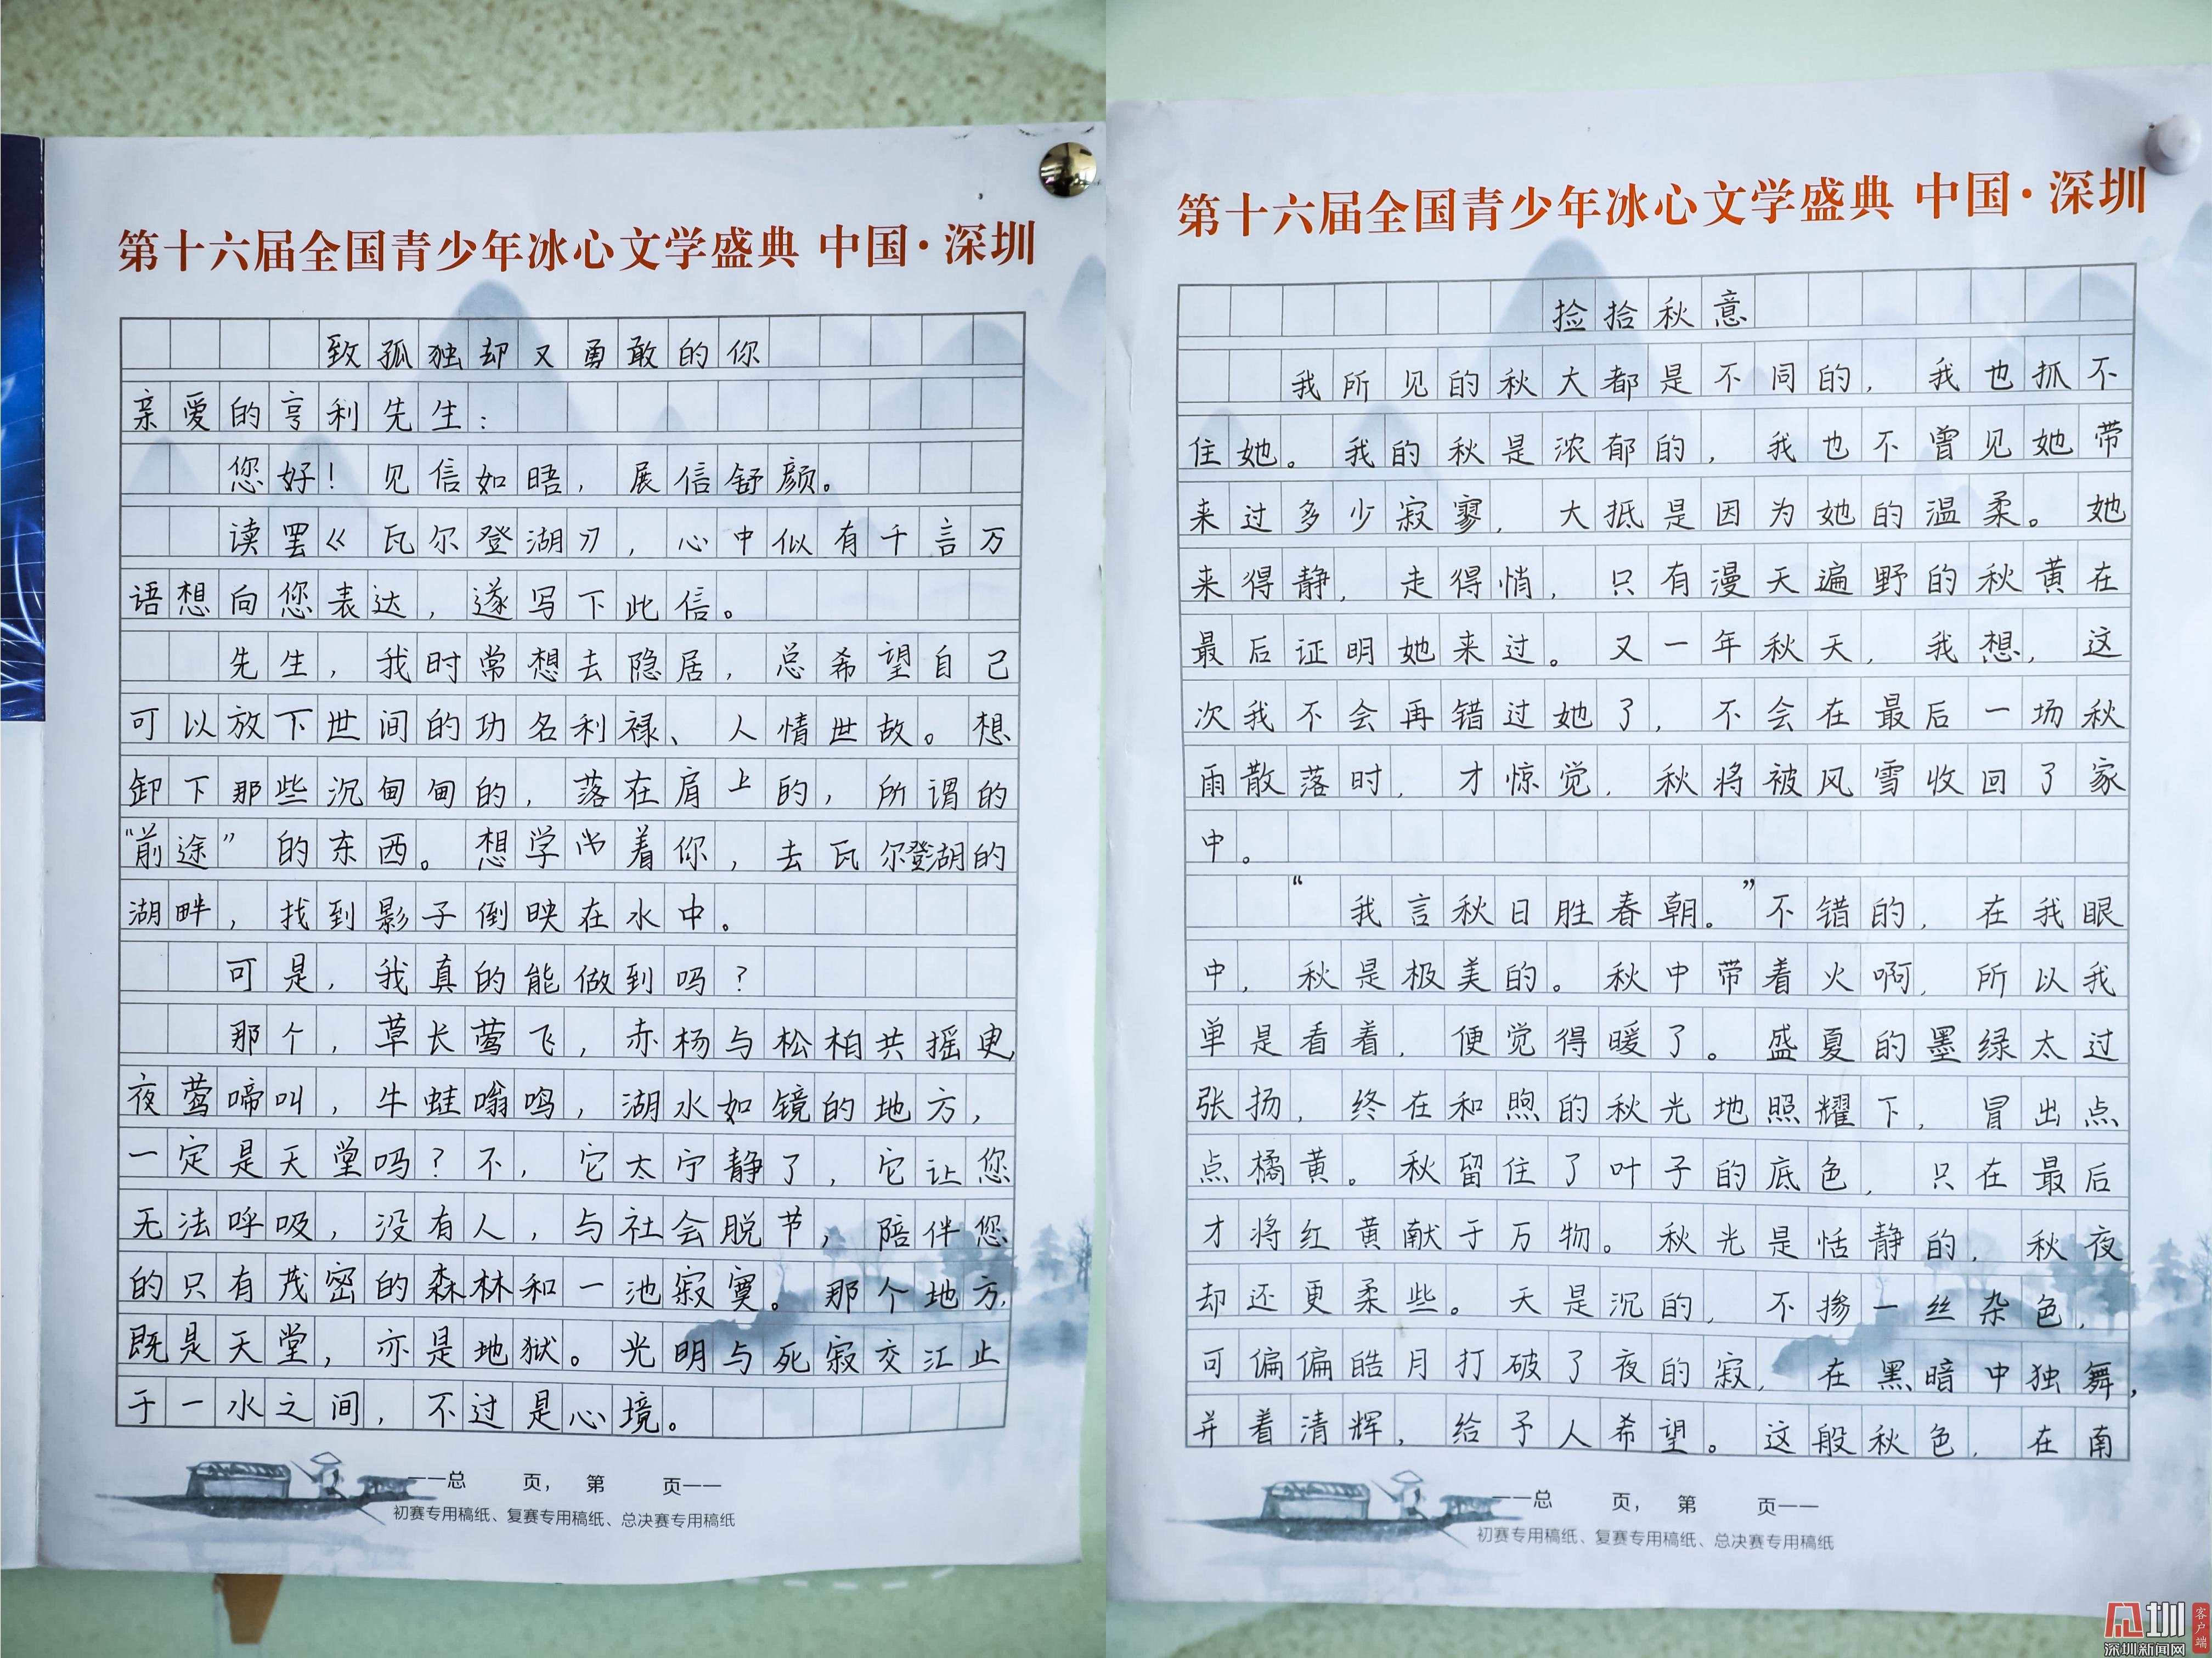 第十六届全国青少年冰心文学盛典 中国·深圳
致孤独却又勇敢的你
亲爱的亨利先生：
您好！见信如晤，展信舒颜。
读罢《瓦尔登湖》，心中似有千言万
语想向您表达，遂写下此信。
先生，我时常想去隐居，总希望自己
可以放下世间的功名利禄、人情世故。想
卸下那些沉甸甸的，落在肩上的，所谓的
“前途”的东西。想学尚着你，去瓦尔登湖的
湖畔，找到影子倒映在水中。
可是，我真的能做到吗？
那个，草长莺飞，赤杨与松柏共摇曳，
夜莺啼叫，牛蛙嗡鸣，湖水如镜的地方，
一定是天堂吗？不，它太宁静了，它让您
无法呼吸，没有人，与社会脱节，陪伴您
的只有茂密的森林和一池寂寞。那个地方，
既是天堂，亦是地狱。光明与死寂交汇止
于一水之间，不过是心境。
一一总 页，第 页一一
初赛专用稿纸、复赛专用稿纸、总决赛专用稿纸
第十六届全国青少年冰心文学盛典 中国·深圳
捡拾秋意
我所见的秋大都是不同的，我也抓不
住她。我的秋是浓郁的，我也不曾见她带
来过多少寂寥，大抵是因为她的温柔。她
来得静，走得悄，只有漫天遍野的秋黄在
最后证明她来过。又一年秋天，我想，这
次我不会再错过她了，不会在最后一场秋
雨散落时，才惊觉，秋将被风雪收回了家
中。
“我言秋日胜春朝。”不错的，在我眼
中，秋是极美的。秋中带着火啊，所以我
单是看着，便觉得暖了。盛夏的墨绿太过
张扬，终在和煦的秋光地照耀下，冒出点
点橘黄。秋留住了叶子的底色，只在最后
才将红黄献于万物。秋光是恬静的，秋夜
却还更柔些。天是沉的，不掺一丝杂色，
可偏偏皓月打破了夜的寂，在黑暗中独舞，
并着清辉，给予人希望。这般秋色，在南
一一总 页，第 页一一
初赛专用稿纸、复赛专用稿纸、总决赛专用稿纸
圳
客户端
深圳新闻网